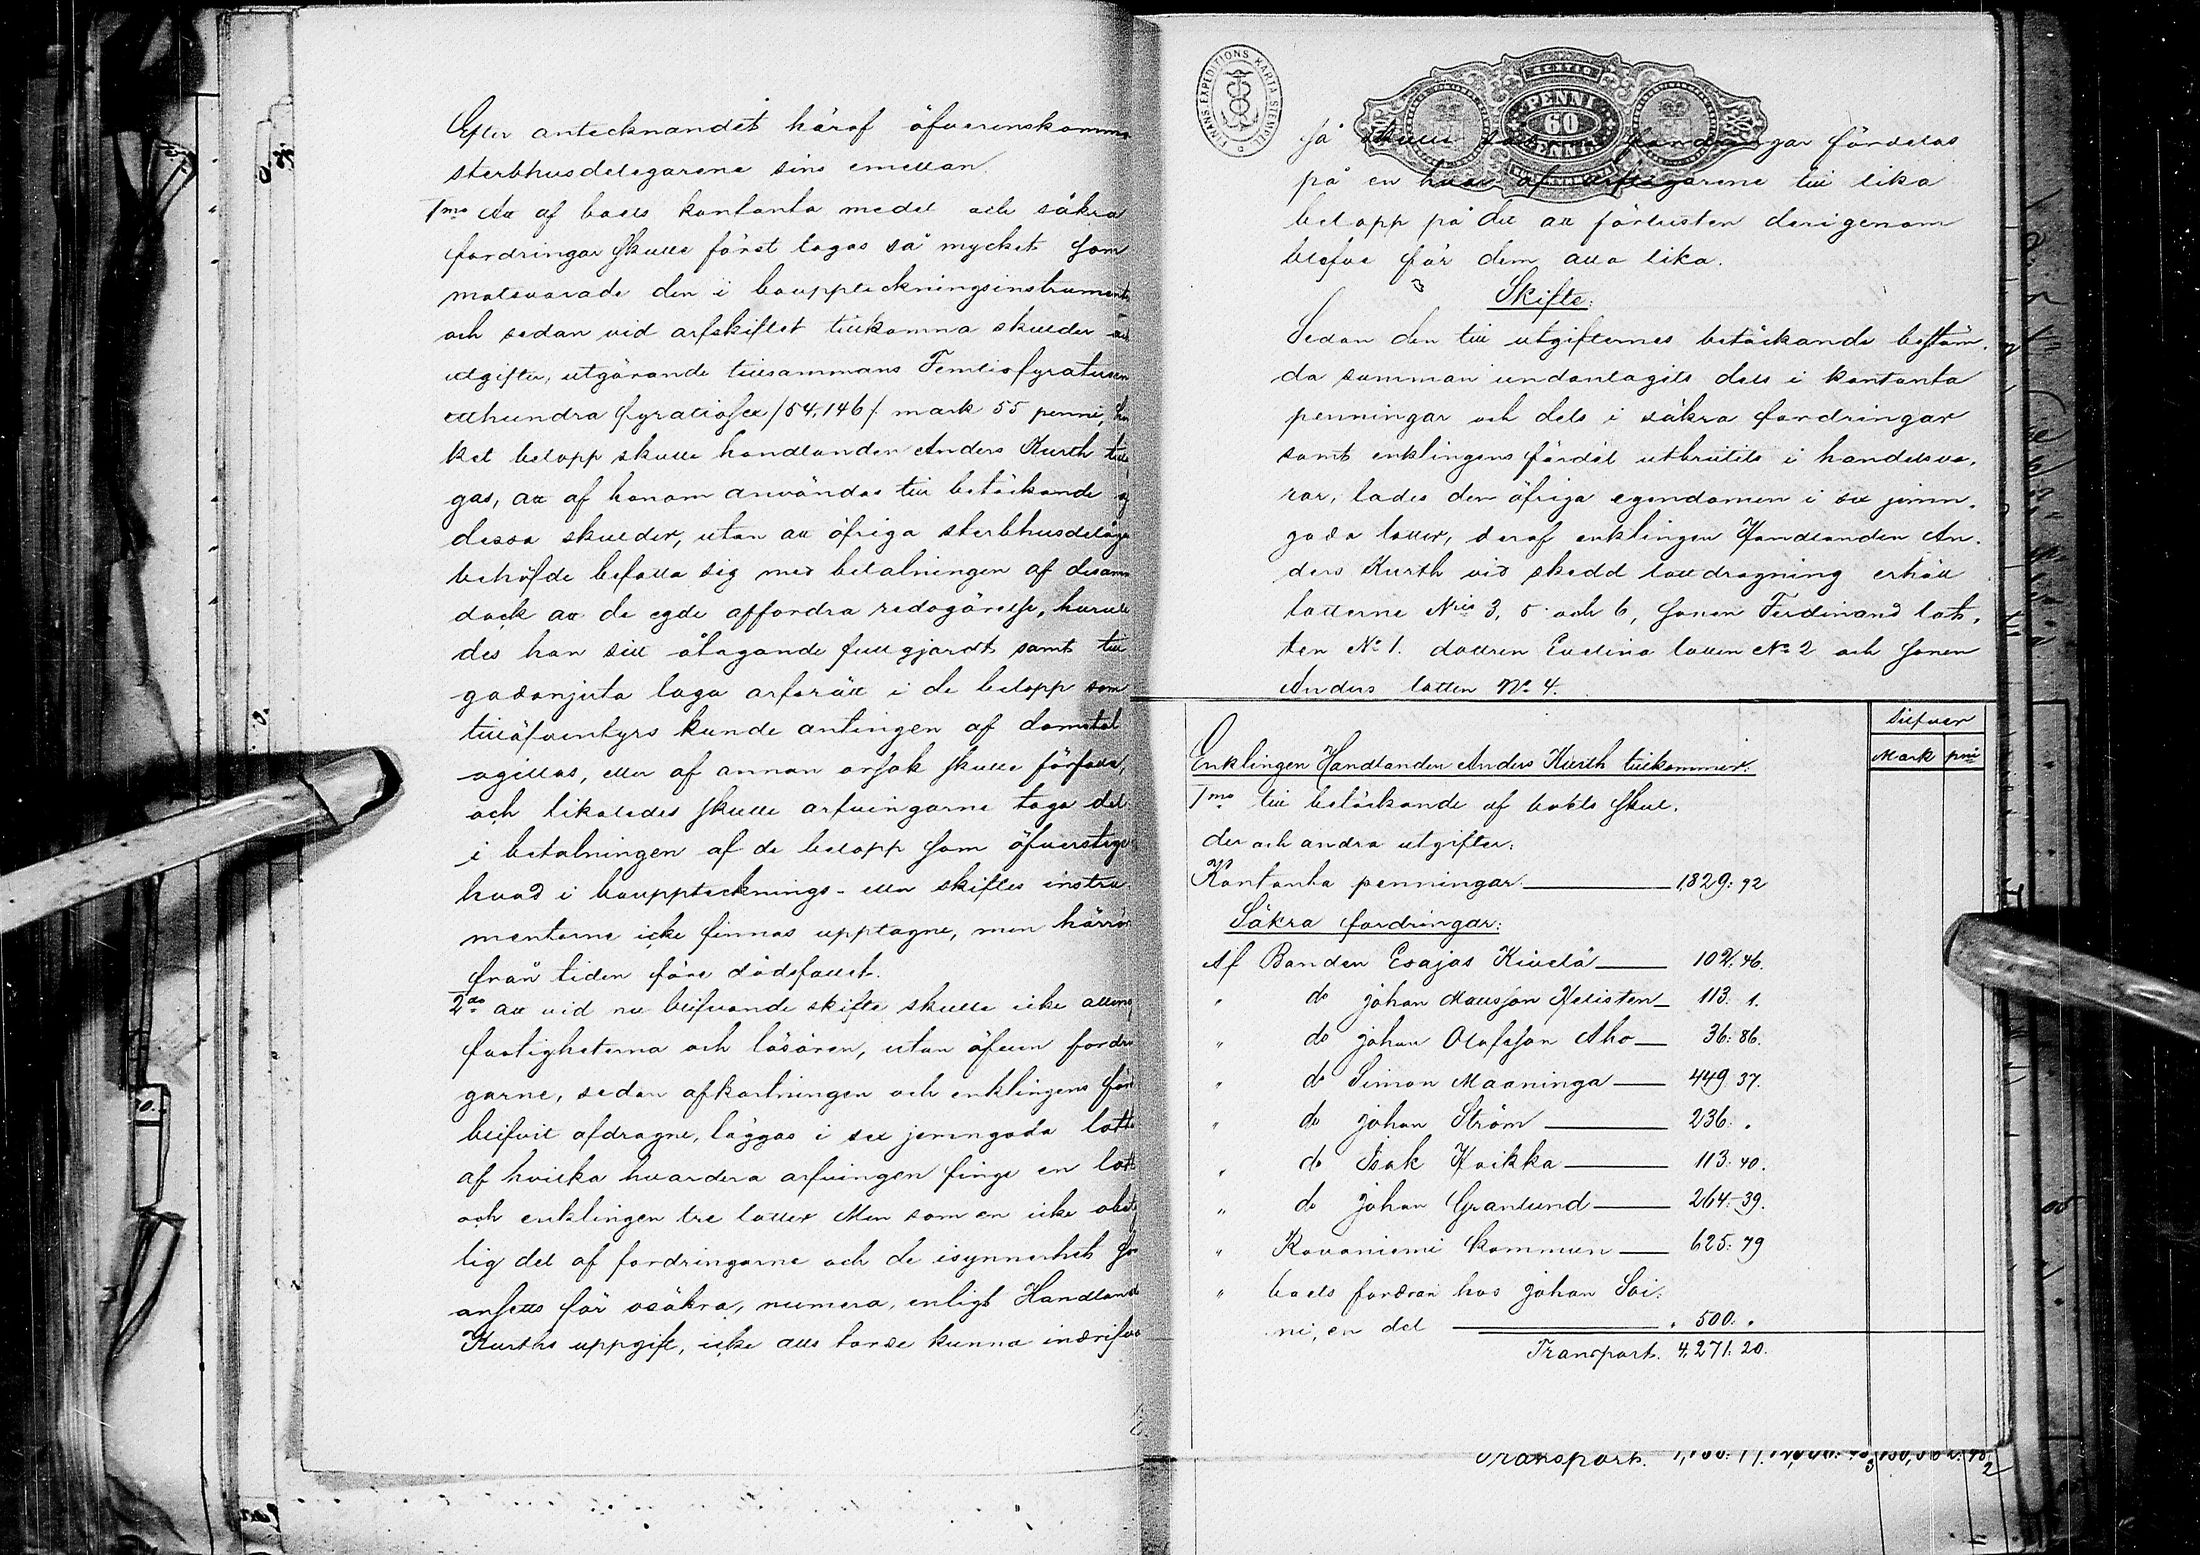 Efter antecknandet häraf öfverenskommo
sterbhusdelegarene sins emellan.
1mo Att af boets kontanta medel och säkra
fordringar skulle först tagas så mycket som
motsvarade den i bouppteckningsinstrument
och sedan vid arfskiftet tillkomna skulder och
utgifter, utgörande tillsammans Femtiofyratusen
etthundra fyratiosex /54,146/ mark 55 penni, hvil
ket belopp skulle handlanden Anders Kurth till
gas, att af honom användas till betäckande af
dessa skulder, utan att öfriga sterbhusdeläga
behöfde befatta sig med betalningen af desam
dock att de egde affordra redogörelse, huru
des han sitt åtagande fullgjordt samt till
godonjuta laga arfsrätt i de belopp som
tilläfventyrs kunde antingen af domstol
ogillas, eller af annan orsak skulle förfalla,
och likaledes skulle arfvingarne taga del
i betalningen af de belopp som öfverstiger
hvad i bouppteknings- eller skiftes instru
menterne icke finnas upptagne, men härrör
från tiden före dödsfallet.
2do att vid nu blifvande skifte skulle icke allenas
fastigheterna och lösören, utan äfven fordrin
garne, sedan afkortningen och enklingens för
blifvit afdragne, läggas i sex jemngoda lotter
af hvilka hvardera arfvingen finge en lott
och enklingen tre lotter Men som en icke obetyd
lig del af fordringarne och de isynnerhet som
ansetts för osäkra, numera, enligt Handland
Kurths uppgift, icke alls torde kunna indrifvas
FINANS EXPEDITIONS KARTA STEMPEL
PENNI
60
så skulle fordringar fördelas
på en hvar af arftagarene till lika
belopp på det att förlusten derigenom
blefve för dem alla lika.
Skifte:
Sedan den till utgifternes betäckande bestäm.
da summan undantagits dels i kontanta
penningar och dels i säkra fordringar
samt enklingens fördel utbrutits i handelsva.
ror, lades den öfriga egendomen i sex jemn.
goda lotter, deraf enklingen Handlanden An.
ders Kurth vid skedd lottdragning erhöll
lotterne Nris 3, 5 och 6, sonen Ferdinand lot.
ten No 1. dottren Evelina lotten No 2 och sonen
Anders lotten No 4.
Silfver
Mark pni
Enklingen Handlanden Anders Kurth tillkommer:
1mo till betäckande af boets skul.
der och andra utgifter:
Kontanta penningar 1,829: 92
Säkra fordringar:
Af Bonden Esajas Kivelä 102: 46.
" do Johan Mattsson Helisten 113: 1.
" do Johan Olofsson Aho 36: 86.
" do Simon Maaninga 449 37.
" do Johan Ström 236: .
" do Isak Hoikka 113: 40.
" do Johan Granlund 264: 39.
" Rovaniemi kommun 625: 79
" boets fordran hos Johan Soi:
ni, en del . 500: .
Transport. 4,271: 20.
Transport.